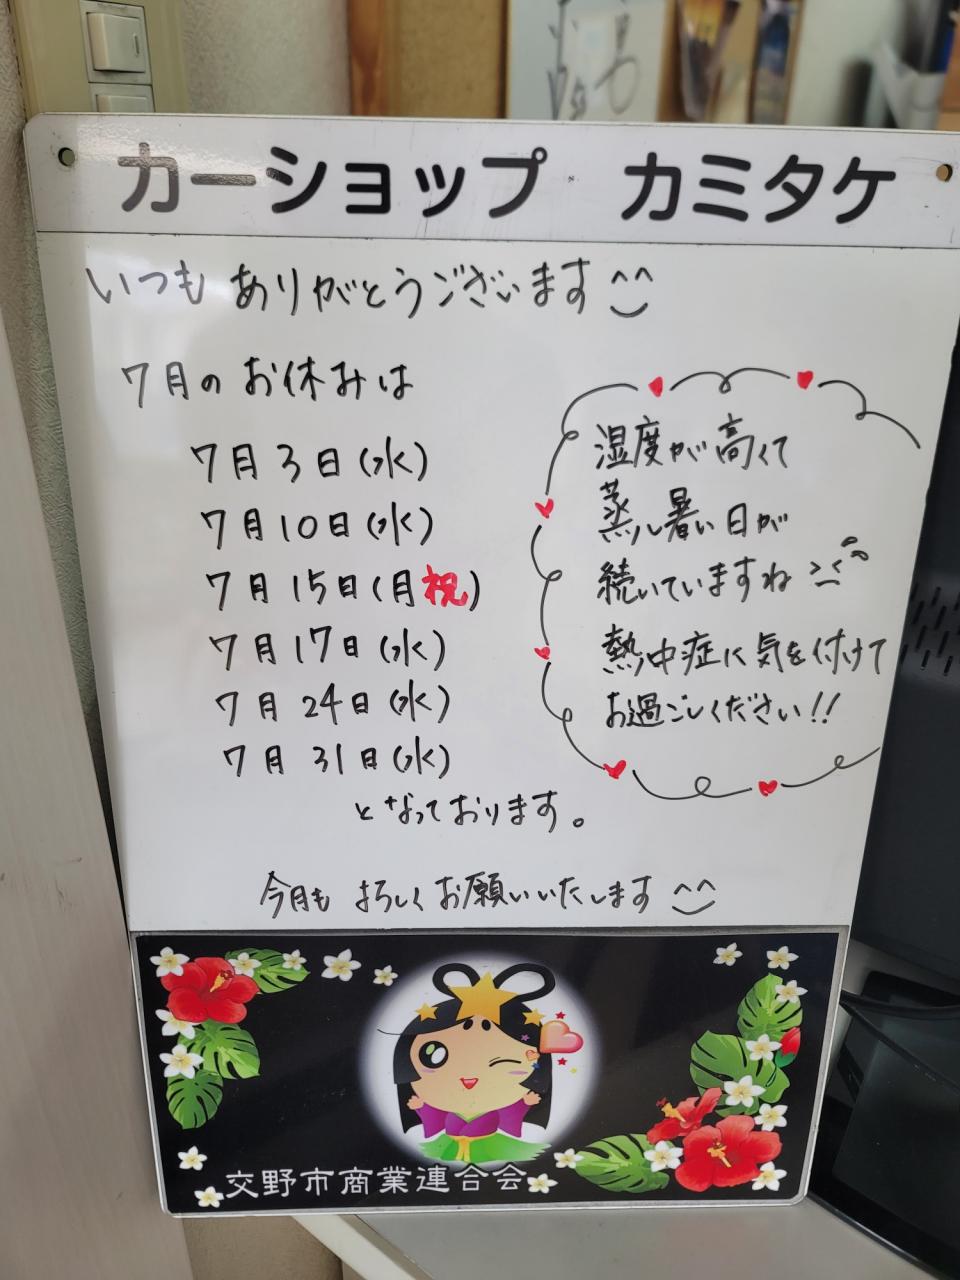 カーショップ カミタケ
いつも ありがとうございます
7月の お休みは
7月3日(水)
7月10日(水)
7月15日(月祝)
7月17日(水)
7月24日(水)
7月31日(水)
となっております。
湿度が高くて
蒸し暑い日が
続いていますね
熱中症に気を付けて
お過ごしください!!
今月も よろしくお願いいたします
交野市商業連合会